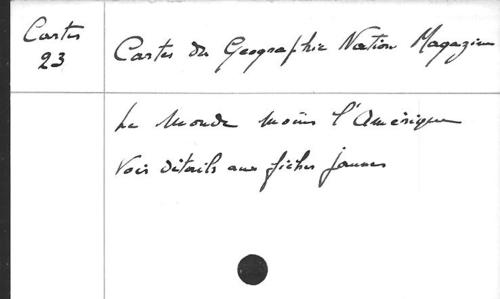 Cartes
23
Cartes du Geographic Nation Magazine
Le Monde moins l'Amérique
Voir détails aux fiches jaunes